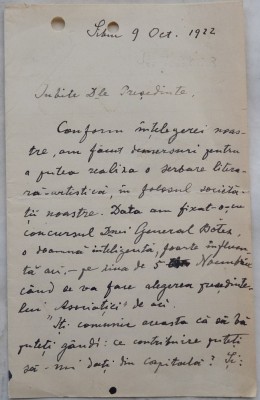 Sibiu 9 Oct. 1922
Iubite Dle Președinte,
Conform înțelegerei noas-
tre, am făcut demersuri pentru
a putea realiza o serbare litera-
ră-artistică, în folosul societă-
ții noastre. Data am fixat-o, cu
concursul Dnei General Botea,
o doamnă inteligentă, foarte influen-
tă aci, - pe ziua de 5 Noembrie
când se va face alegerea președinte-
lui "Asociației" de aci.
Iți comunic aceasta ca să vă
puteți gândi: ce contribuire puteți
să-mi dați din capitală? Și: